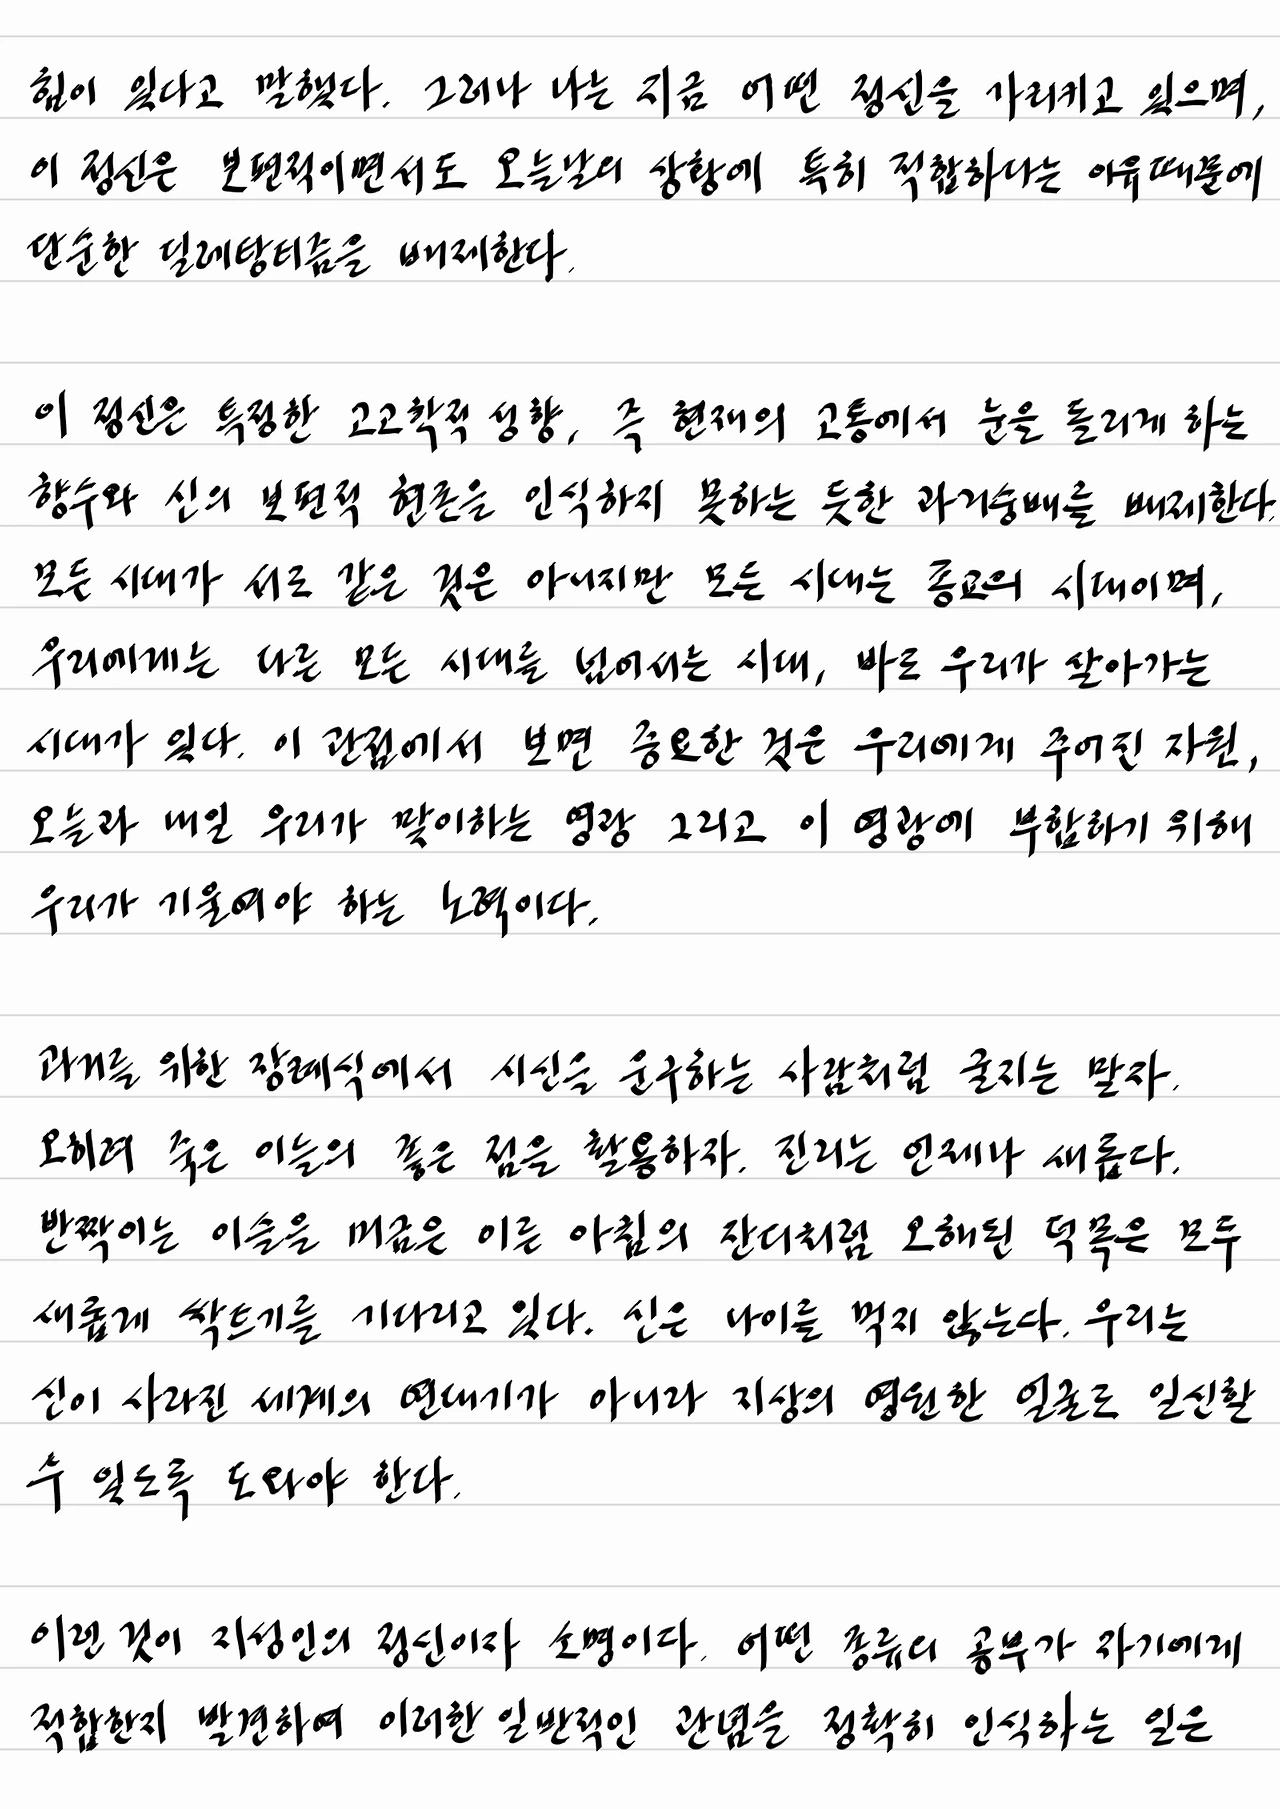 힘이 있다고 말했다. 그러나 나는 지금 어떤 정신을 가리키고 있으며,
이 정신은 보편적이면서도 오늘날의 상황에 특히 적합하다는 이유때문에
단순한 딜레탕티즘을 배제한다.
이 정신은 특정한 고고학적 성향, 즉 현재의 고통에서 눈을 돌리게 하는
향수와 신의 보편적 현존을 인식하지 못하는 듯한 과거숭배를 배제한다.
모든 시대가 서로 같은 것은 아니지만 모든 시대는 종교의 시대이며,
우리에게는 다른 모든 시대를 넘어서는 시대, 바로 우리가 살아가는
시대가 있다. 이 관점에서 보면 중요한 것은 우리에게 주어진 자원,
오늘과 내일 우리가 맞이하는 영광 그리고 이 영광에 부합하기 위해
우리가 기울여야 하는 노력이다.
과거를 위한 장례식에서 시신을 운구하는 사람처럼 굴지는 말자.
오히려 죽은 이들의 좋은 점을 활용하자. 진리는 언제나 새롭다.
반짝이는 이슬을 머금은 이른 아침의 잔디처럼 오래된 덕목은 모두
새롭게 싹트기를 기다리고 있다. 신은 나이를 먹지 않는다. 우리는
신이 사라진 세계의 연대기가 아니라 지상의 영원한 얼굴도 일신할
수 있도록 도와야 한다.
이런 것이 지성인의 정신이자 소명이다. 어떤 종류의 공부가 자기에게
적합한지 발견하여 이러한 일반적인 관념을 정확히 인식하는 일은